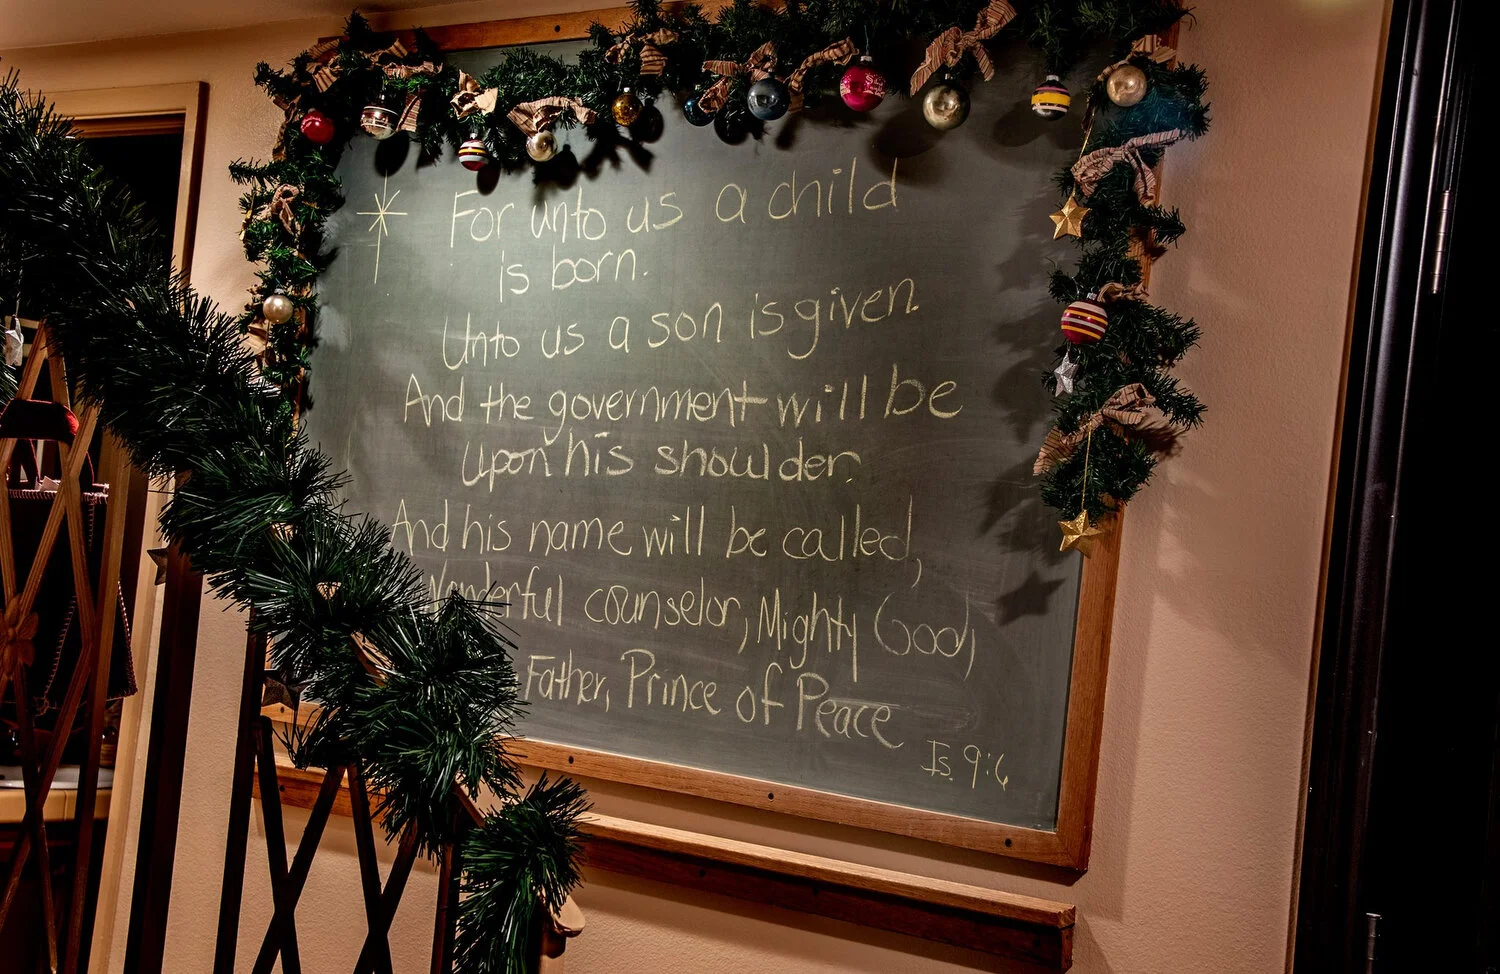 For unto us a child
is born.
Unto us a son is given.
And the government will be
upon his shoulder.
And his name will be called,
Wonderful counselor, Mighty God,
Father, Prince of Peace
Is. 9:6